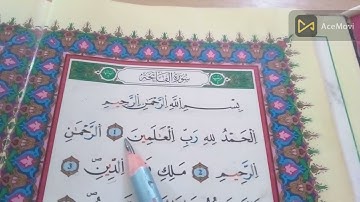 AceMovi
سُورَةُ الفَاتِحَةِ
بِسْمِ اللَّهِ الرَّحْمَٰنِ الرَّحِيمِ
الْحَمْدُ لِلَّهِ رَبِّ الْعَالَمِينَ ١ الرَّحْمَٰنِ
الرَّحِيمِ ٢ مَلِكِ الدِّينِ ٣